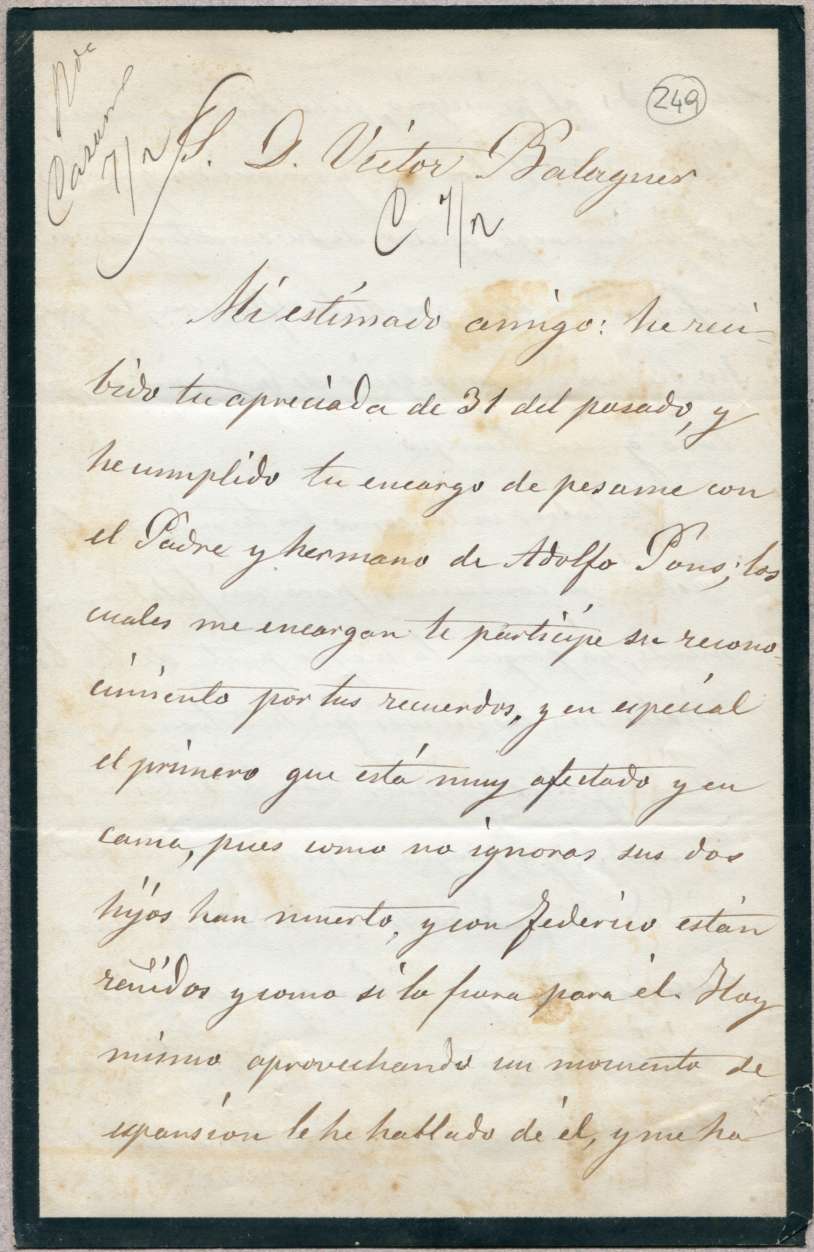 249
7/2
S. D. Víctor Balaguer
C 7/2
Mi estimado amigo: he reci-
bido tu apreciada de 31 del pasado, y
he cumplido tu encargo de pesame con
el Padre y hermano de Adolfo Pons; los
cuales me encargan te participe su recono-
cimiento por tus recuerdos, y en especial
el primero que está muy afectado y en
cama, pues como no ignoras sus dos
hijos han muerto, y con Federico están
reñidos y como si lo fuera para él. Hoy
mismo aprovechando un momento de
espansion le he hablado de él, y me ha